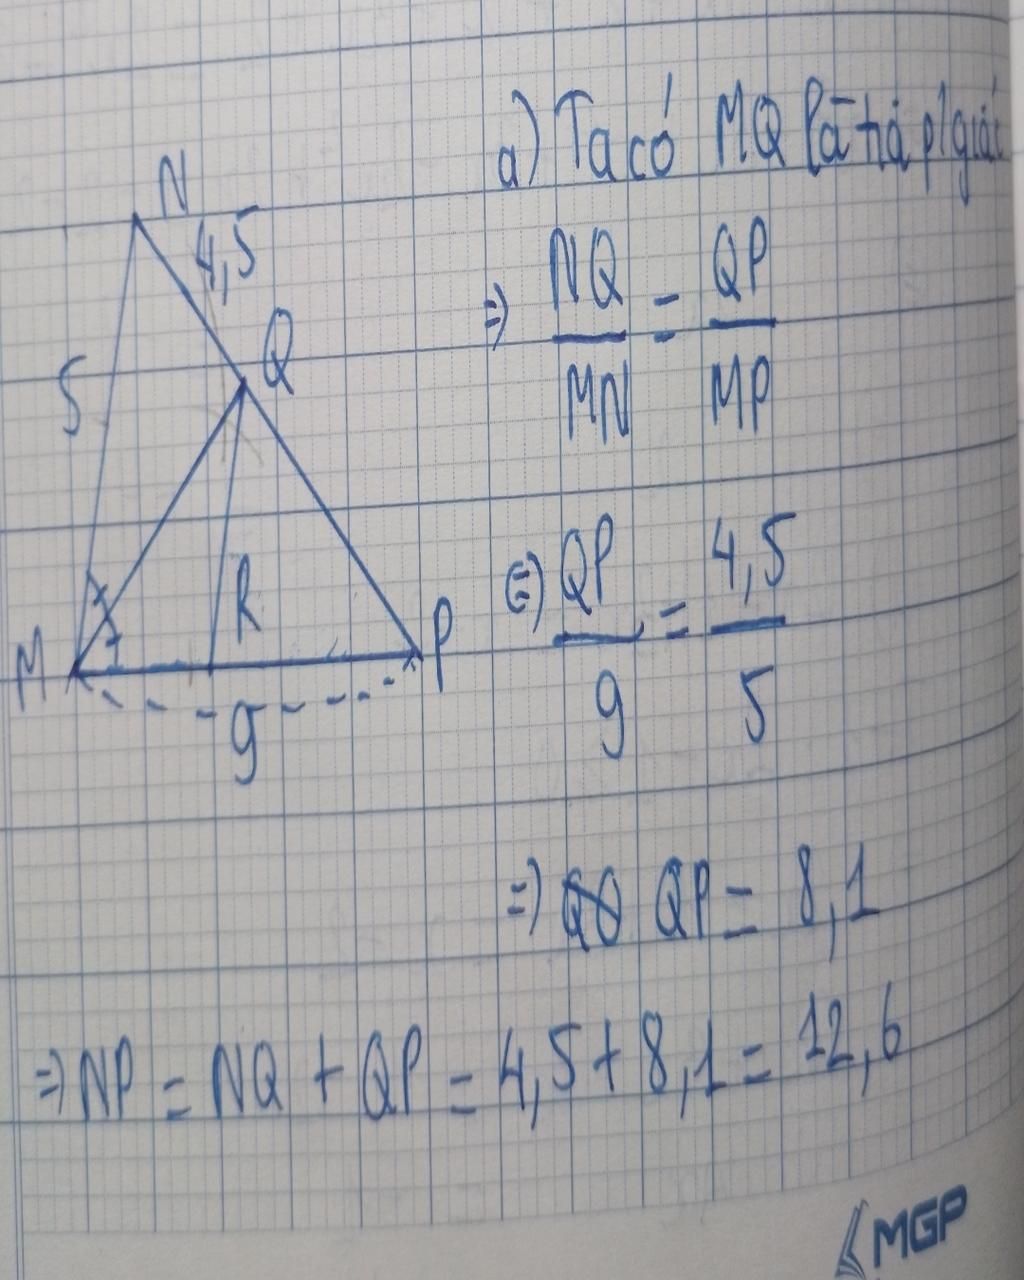 a) Ta có MQ là tia p/giác
N
4,5
⇒ NQ/MN = QP/MP
Q
5
⇔ QP/9 = 4,5/5
R
M
P
9
⇒ QP = 8,1
⇒ NP = NQ + QP = 4,5 + 8,1 = 12,6
MGP